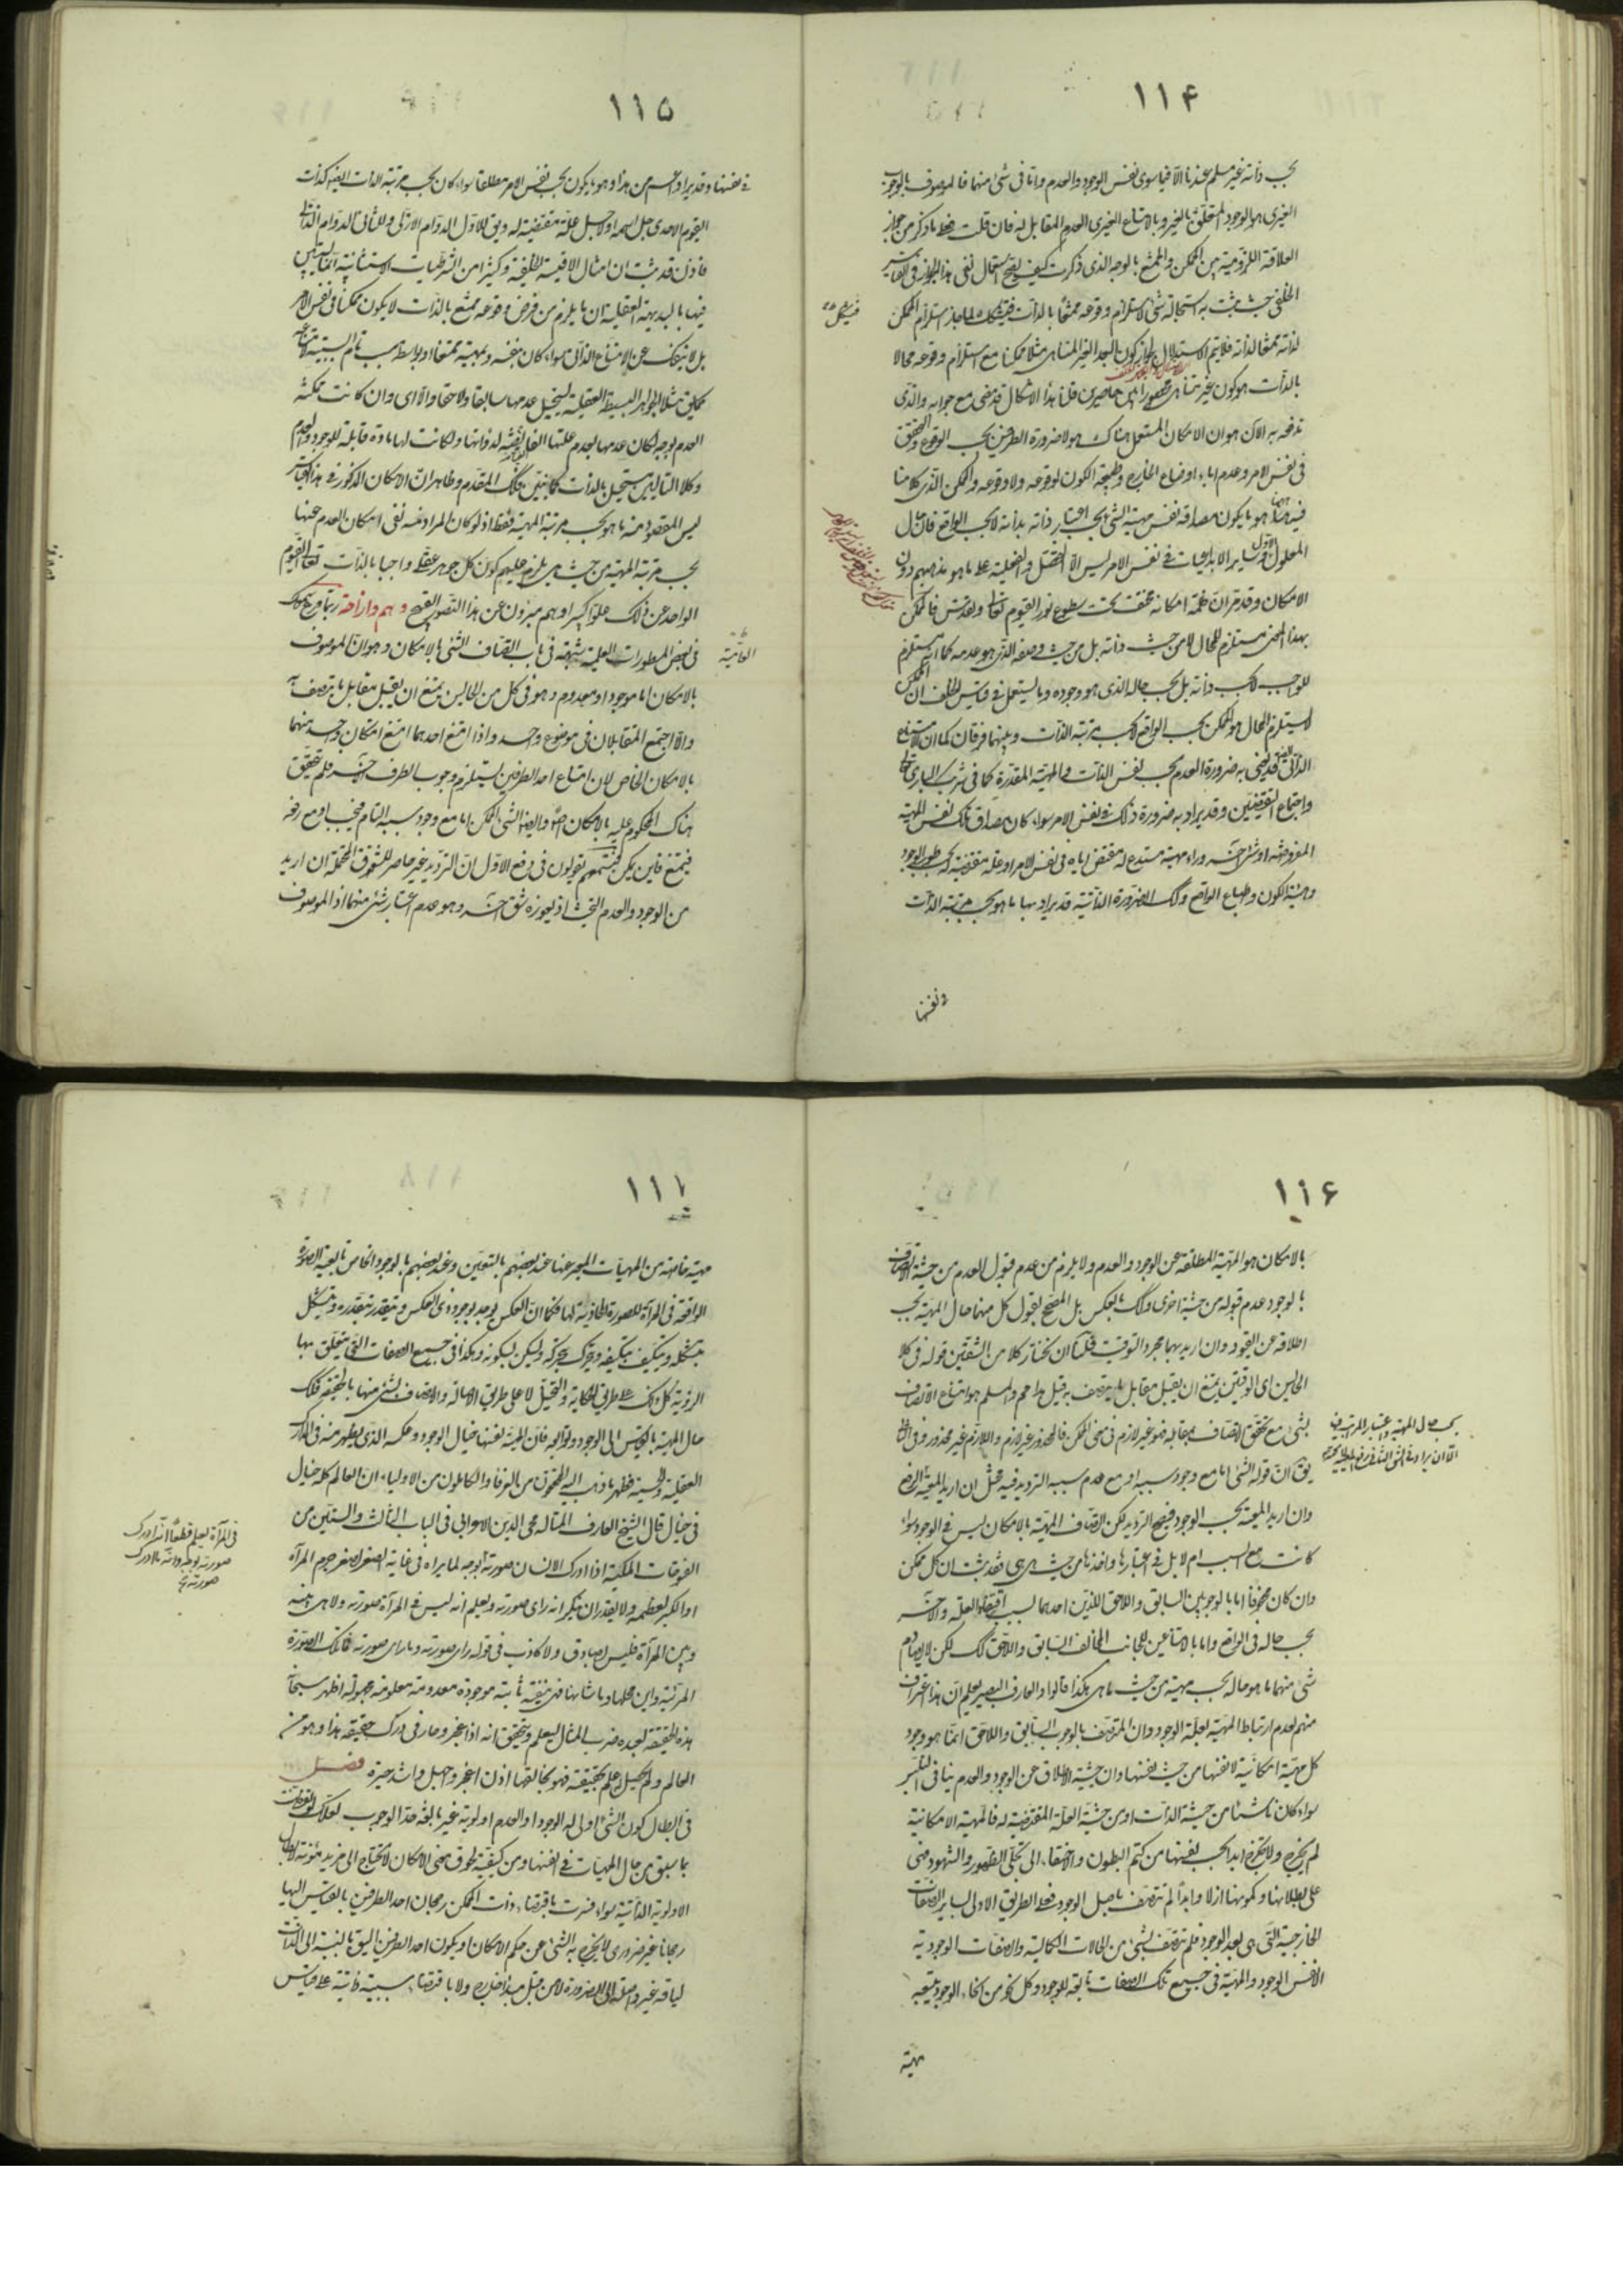 ۱۱۴
بحسب ذاته غير مسلم عندنا الا فيما سوى نفس الوجود والعدم واما فى شئ منهما فالموصوف بالوجوب
الغيرى هو الوجود المتعلق بالغير وبالامتناع الغيرى العدم المقابل له فان قلت فعلى ما ذكر من جواز
العلاقة اللزومية بين الممكن والممتنع بالوجه الذى ذكرت كيف يصح استعمال نفى هذا الجواز فى القياس
الخلفى حيث يثبت به استحالة شئ لاستلزام وقوعه ممتنعا بالذات فيتشكك لما جاز استلزام الممكن
لذاته ممتنعا لذاته فلا يتم الاستدلال لجواز كون البعد الغير المتناهى مثلا ممكنا مع استلزام وقوعه محالا
بالذات هو كون غير متناهى محصورا بين حاصرين قلنا هذا الاشكال قد مضى مع جوابه والذى
ندفعه به الان هو ان الامكان المستعمل هناك هو لا ضرورة الطرفين بحسب الوقوع والتحقق
فى نفس الامر وعدم اباء اوضاع الخارج وطبيعة الكون لوقوعه ولا وقوعه والممكن الذى كلامنا
فيه ههنا هو ما يكون مصداقه نفس مهية الشئ بحسب اعتبار ذاته بذاته لا بحسب الواقع فان حال
المعلول الاول وساير الابداعيات فى نفس الامر ليس الا التحصل والفعلية على ما هو مذهبهم دون
الامكان وقد مر ان ظلمة امكانه مختفت تحت سطوع نور القيوم تعالى وتقدس فالممكن
بهذا المعنى مستلزم للمحال لا من حيث ذاته بل من حيث وصفه الذى هو عدمه كما انه يستلزم
للواجب لا بحسب ذاته بل بحسب حاله الذى هو وجوده وما يستعمل فى قياس الخلف ان الممكن
لا يستلزم المحال هو الممكن بحسب الواقع لا بحسب مرتبة الذات وبينهما فرقان كما ان الامتناع
الذاتى ايضا قد يعنى به ضرورة العدم بحسب نفس الذات والمهية المقدرة كما فى شريك البارى تعالى
واجتماع النقيضين وقد يراد به ضرورة ذلك فى نفس الامر سواء كان مصداق تلك نفس المهية
المفروضة او شئ اخر وراء مهية مستدع له مقتض اياه فى نفس الامر او علة مقتضية له بحسب طور الوجود
وهيئة الكون وطباع الواقع وكذلك الضرورة الذاتية قد يراد بها ما هو بحسب مرتبة الذات
فى نفسها
فيتشكك
۱۱۵
فى نفسها وقد يراد اعم من هذا وهو ما يكون بحسب نفس الامر مطلقا سواء كان بحسب مرتبة الذات ايضا كذات
القيوم الاحدى جل اسمه او لاجل علة مقتضية له ويق للاول الدوام الازلى وللثانى الدوام الذاتى
فاذن قد ثبت ان امثال الاقيسة الخلفية وكثيرا من الشرطيات الاستثنائية انما يتبين
فيها بالبديهة العقلية ان ما يلزم من فرض وقوعه ممتنع بالذات لا يكون ممكنا فى نفس الامر
بل لا ينفك عن الامتناع الذاتى سواء كان بنفسه وبمهيته ممتنعا او بواسطة سبب تام السببية لامتناعه
كما يق مثلا الجواهر البسيطة العقلية يستحيل عدمها سابقا ولاحقا والا اى وان كانت ممكنة
العدم بوجه لكان عدمها بعدم علتها الفياضة لذواتها ولكانت لها مادة قابلة للوجود والعدم
وكلا التاليين مستحيل بالذات كما تبين فكذلك المقدم وظاهر ان الامكان المذكور فى هذا القياس
ليس المقصود منه ما هو بحسب مرتبة المهية فقط اذ لو كان المراد منه نفى امكان العدم عنها
بحسب مرتبة المهية من حيث هى يلزم عليهم كون كل جوهر عقلى واجبا بالذات تعالى القيوم
الواحد عن ذلك علوا كبيرا وهم مبرءون عن هذا التصور القبيح وهم وازاحة ربما قرع سمعك
فى بعض المسطورات العلمية شبهة فى باب اتصاف الشئ بالامكان وهو ان الموصوف
بالامكان اما موجود او معدوم وهو فى كل من الحالين يمتنع ان يقبل مقابل ما يتصف به
والا اجتمع المتقابلان فى موضوع واحد واذا امتنع احدهما امتنع امكان واحد منهما
بالامكان الخاص لان امتناع احد الطرفين يستلزم وجوب الطرف الاخر فلم يتحقق
هناك المحكوم عليه بالامكان اصلا وايضا الشئ الممكن اما مع وجود سببه التام فيجب او مع رفعه
فيمتنع فاين يمكن فتسمعهم يقولون فى دفع الاول ان الترديد غير حاصر للشقوق المحتملة ان اريد
من الوجود والعدم التحيث اذ يعوزه شق اخر وهو عدم اعتبار شئ منهما اذ الموصوف
۱۱۶
بالامكان هو المهية المطلقة عن الوجود والعدم ولا يلزم من عدم قبول العدم من حيثية الاتصاف
بالوجود عدم قبوله من حيثية اخرى وكذلك بالعكس بل المصحح لقبول كل منهما حال المهية بحسب
اطلاقه عن القيود وان اريد بهما مجرد التوقيت فلنا ان نختار كلا من الشقين قوله فى كلا
الحالين اى الوقتين يمتنع ان يقبل مقابل ما يتصف به قيل هذا مم والمسلم هو امتناع الاتصاف
بشئ مع تحقق الاتصاف بمقابله فهو غير لازم فى معنى الممكن فالمحذور غير لازم واللازم غير محذور وفى الثانى
يق ان قوله الشئ اما مع وجود سببه او مع عدم سببه الترديد فيه مختل ان اريد المعية
وان اريد المعية بحسب الوجود فيصح الترديد لكن اتصاف المهية بالامكان ليس فى الوجود سواء
كانت مع السبب ام لا بل فى اعتبارها واخذها من حيث هى هى فقد ثبت ان كل ممكن
وان كان محفوفا اما بالوجوبين السابق واللاحق اللذين احدهما بسبب اقتضاء العلة والاخر
بحسب حاله فى الواقع واما بالامتناعين للجانب المخالف السابق واللاحق كذلك لكن لا يصادم
شئ منهما ما هو حاله بحسب مهيته من حيث هى هى هكذا قالوا والعارف البصير يعلم ان هذا اعتراف
منهم بعدم ارتباط المهية بعلة الوجود وان المتصف بالوجوب السابق واللاحق انما هو وجود
كل مهية امكانية لا نفسها من حيث نفسها وان حيثية الاطلاق عن الوجود والعدم ينافى التلبس
سواء كان ناشئا من حيثية الذات او من حيثية العلة المقتضية له فالمهية الامكانية
لم يخرج ولا يخرج ابدا بحسب نفسها من كتم البطون والاختفاء الى مجلى الظهور والشهود فهى
على بطلانها وكمونها ازلا وابدا لم تتصف باصل الوجود فعلى الطريق الاولى بساير الصفات
الخارجية التى هى بعد الوجود فلم تتصف بشئ من الحالات الكمالية والصفات الوجودية
الا نفس الوجود والمهية فى جميع تلك الصفات تابعة للوجود وكل نحو من انحاء الوجود يتبعه
مهية
۱۱۷
مهية خاصة من المهيات المعبر عنها عند بعضهم بالتعين وعند بعضهم بالوجود الخاص تابعية الصورة
الواقعة فى المرآة للصورة المحاذية لها فكما ان العكس يوجد بوجود ذى العكس ويتقدر بتقدره ويتشكل
بتشكله ويتكيف بتكيفه ويتحرك بحركته ويسكن بسكونه وهكذا فى جميع الصفات التى يتعلق بها
الرؤية كل ذلك على طريق الحكاية والتخيل لا على طريق الاصالة والاتصاف بشئ منها بالحقيقة فكذلك
حال المهية بالقياس الى الوجود وتوابعه فان المهية نفسها خيال الوجود وعكسه الذى يظهر منه فى المدارك
العقلية والحسية فظهر ما ذهب اليه المحققون من العرفاء والكاملون من الاولياء ان العالم كله خيال
فى خيال قال الشيخ العارف المتاله محى الدين الاعرابى فى الباب الثالث والستين من
الفتوحات المكية اذا ادرك الانسان صورته بوجه لما يراه فى غاية الصغر لصغر جرم المرآة
او الكبر لعظمه ولا يقدر ان ينكر انه راى صورته ويعلم انه ليس فى المرآة صورته ولا هى بينه
وبين المرآة فليس بصادق ولا كاذب فى قوله راى صورته وما راى صورته فما تلك الصورة
المرئية واين محلها وما شانها فهى منفية ثابتة موجودة معدومة معلومة مجهولة اظهر سبحانه
هذه الحقيقة لعبده ضرب المثال ليعلم ويتحقق انه اذا عجز وحار فى درك حقيقة هذا وهو من
العالم ولم يحصل علم بحقيقته فهو بخالقها اذن اعجز واجهل واشد حيرة فصل
فى ابطال كون الشئ اولى له الوجود او العدم اولوية غير بالغة حد الوجوب لعلك لو تفطنت
بما سبق من حال المهيات فى انفسها ومن كيفية لحوق معنى الامكان لا تحتاج الى مزيد مؤنة لابطال
الاولوية الذاتية سواء فسرت باقتضاء ذات الممكن رجحان احد الطرفين بالقياس اليها
رجحانا غير ضرورى لا يخرج به الشئ عن حكم الامكان او بكون احد الطرفين اليق بالنسبة الى الذات
لياقة غير واصلة الى الضرورة لا من قبل مبدأ خارج ولا باقتضاء سببية ذاتية على قياس
فى المرآة يعلم قطعا انه ادرك
صورته بوجه وانه ما ادرك
صورته بوجه